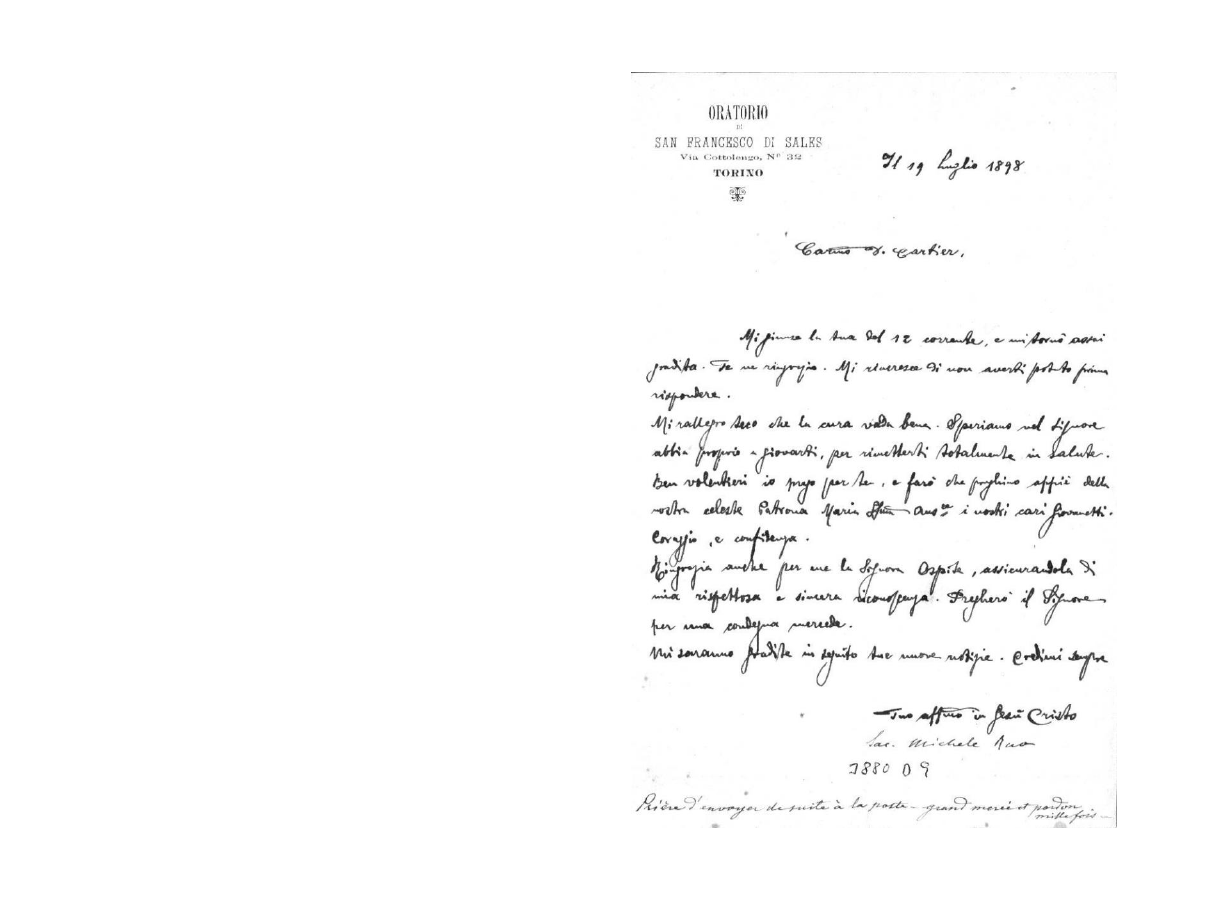 ORATORIO
DI
SAN FRANCESCO DI SALES
Via Cottolengo, Nº 32
TORINO
Il 19 Luglio 1898
Carmo D. Cartier,
Mi giunse la tua del 12 corrente, e mi tornò assai
gradita. Te ne ringrazio. Mi rincresce di non averti potuto prima
rispondere.
Mi rallegro teco che la cura vada bene. Speriamo nel Signore
abbia proprio a giovarti, per rimetterti totalmente in salute.
Ben volentieri io prego per te, e farò che preghino appiè della
nostra celeste Patrona Maria SSma Ausce i nostri cari giovanetti.
Coraggio, e confidenza.
Ringrazia anche per me la Signora Ospite, assicurandola di
mia rispettosa e sincera riconoscenza. Pregherò il Signore
per una condegna mercede.
Mi saranno gradite in seguito tue nuove notizie. Credimi sempre
Tuo affmo in Gesù Cristo
Sac. Michele Rua
3880 D 9
Prière d'envoyer de suite à la poste - grand merci et pardon
mille fois -